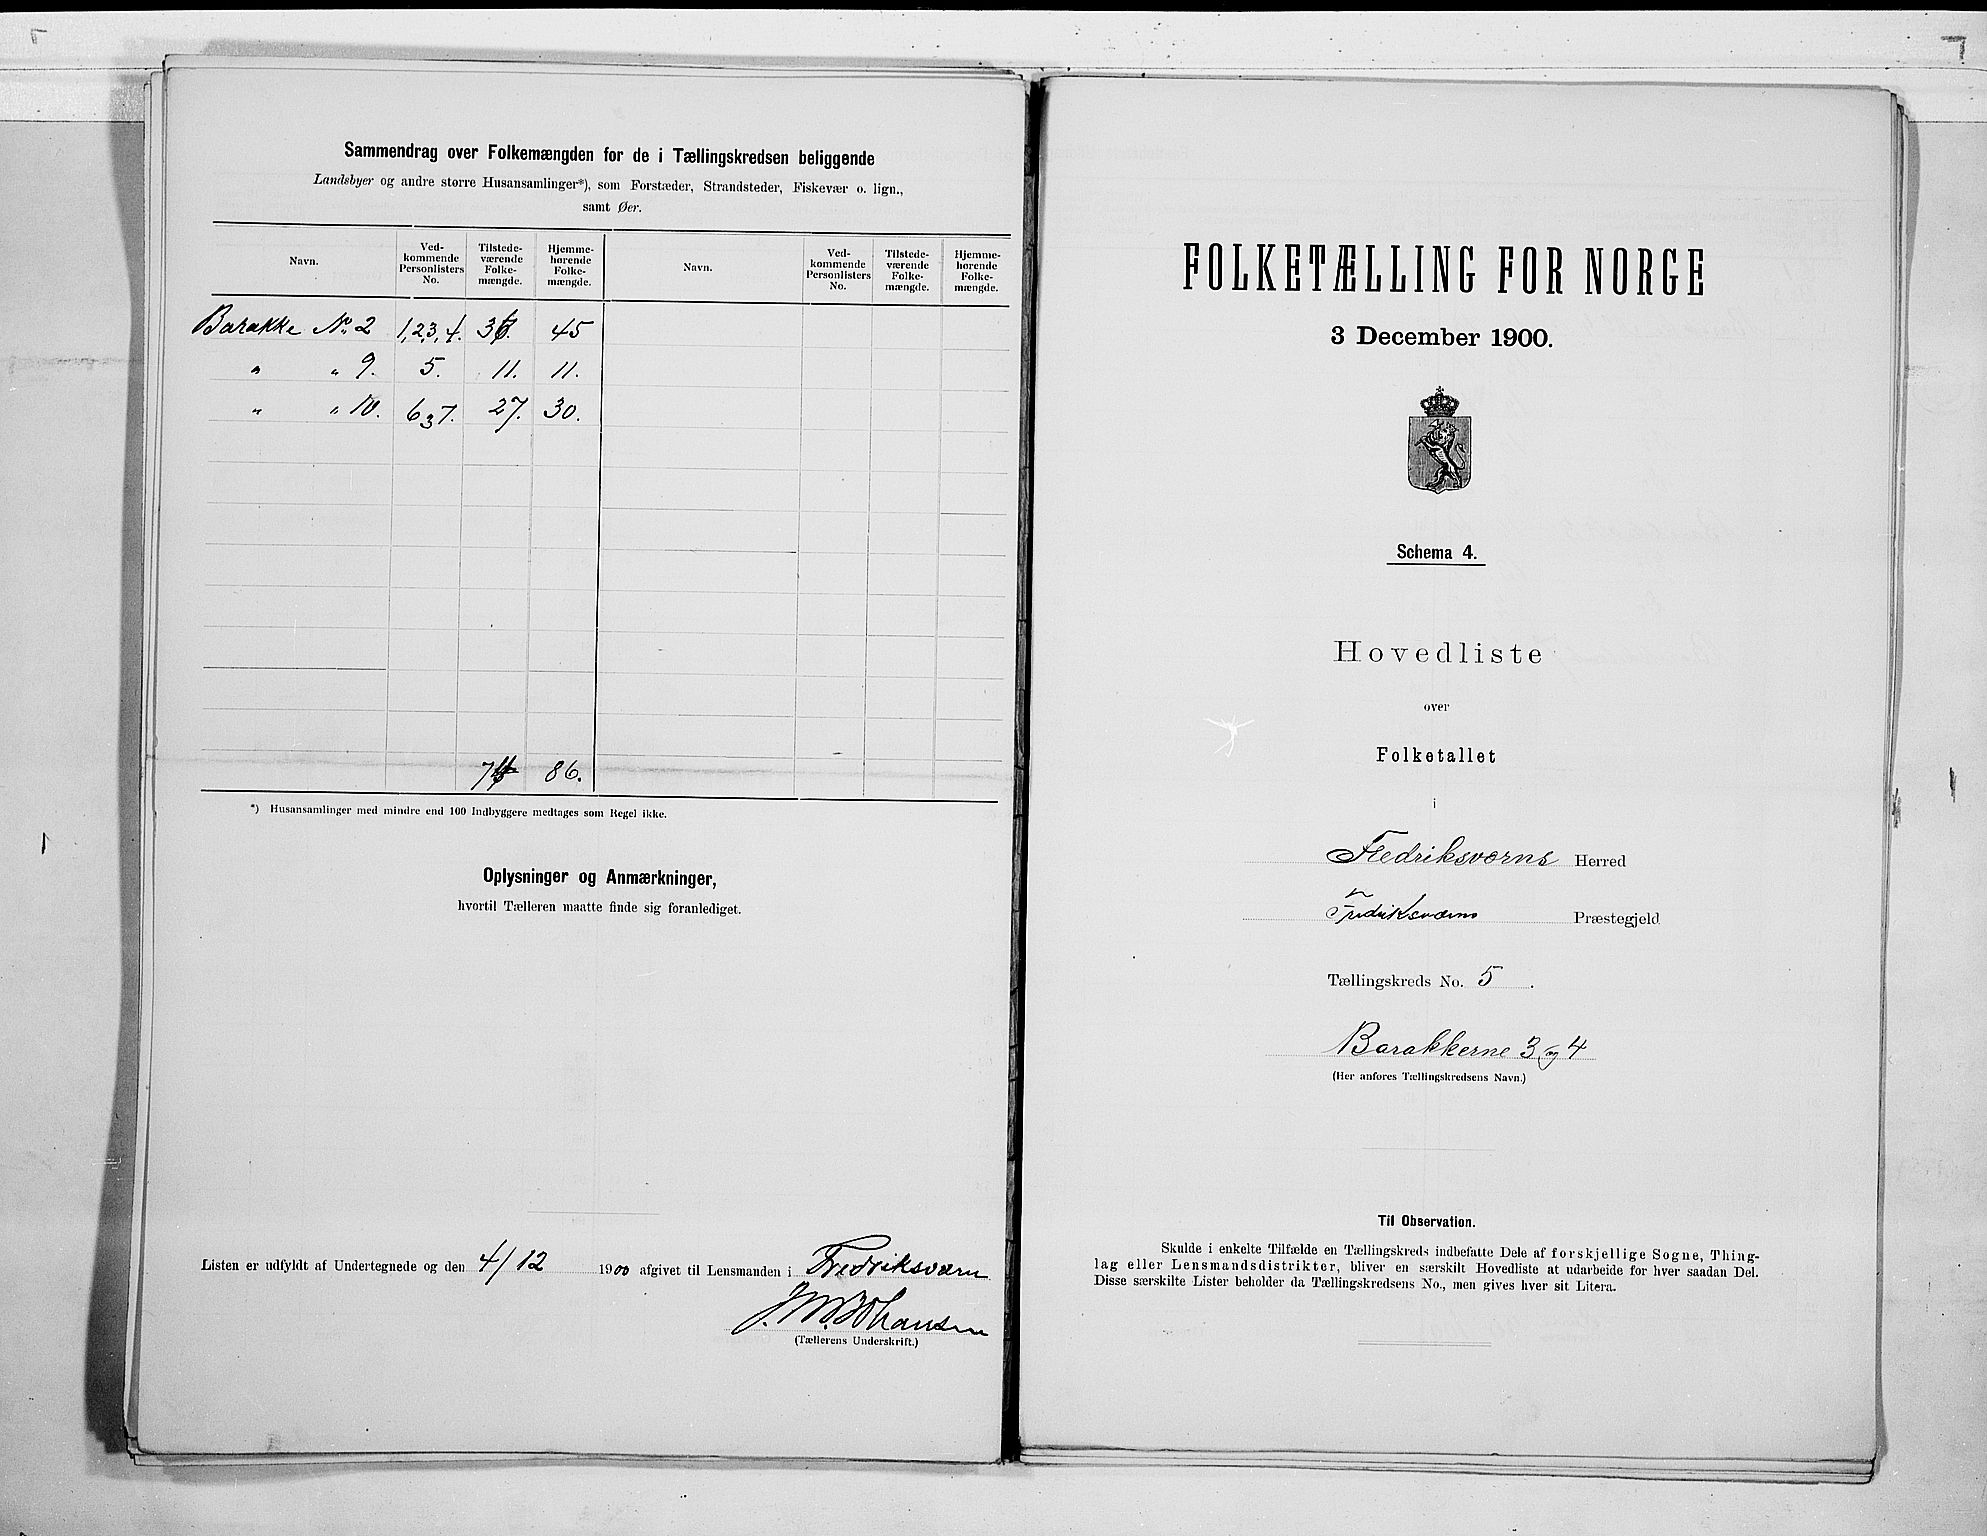 Sammendrag over Folkemængden for de i Tællingskredsen beliggende
Landsbyer og andre større Husansamlinger*), som Forstæder, Strandsteder, Fiskevær o. lign.,
samt Øer.
Navn. Ved-kommende Personlisters No. Tilstede-værende Folke-mængde. Hjemme-hørende Folke-mængde. Navn. Ved-kommende Personlisters No. Tilstede-værende Folke-mængde. Hjemme-hørende Folke-mængde.
Barakke No. 2 1,2,3,4. 45
" " 9. 5. 11. 11.
" " 10. 6 og 7. 27. 30.
86.
*) Husansamlinger med mindre end 100 Indbyggere medtages som Regel ikke.
Oplysninger og Anmærkninger,
hvortil Tælleren maatte finde sig foranlediget.
Listen er udfyldt af Undertegnede og den 4/12 1900 afgivet til Lensmanden i Fredriksværn
Johansen
(Tællerens Underskrift.)
FOLKETÆLLING FOR NORGE
3 December 1900.
Schema 4.
Hovedliste
over
Folketallet
i
Fredriksværns Herred
Fredriksværns Præstegjeld
Tællingskreds No. 5.
Barakkerne 3 og 4
(Her anføres Tællingskredsens Navn.)
Til Observation.
Skulde i enkelte Tilfælde en Tællingskreds indbefatte Dele af forskjellige Sogne, Thing-
lag eller Lensmandsdistrikter, bliver en særskilt Hovedliste at udarbeide for hver saadan Del.
Disse særskilte Lister beholder da Tællingskredsens No., men gives hver sit Litera.